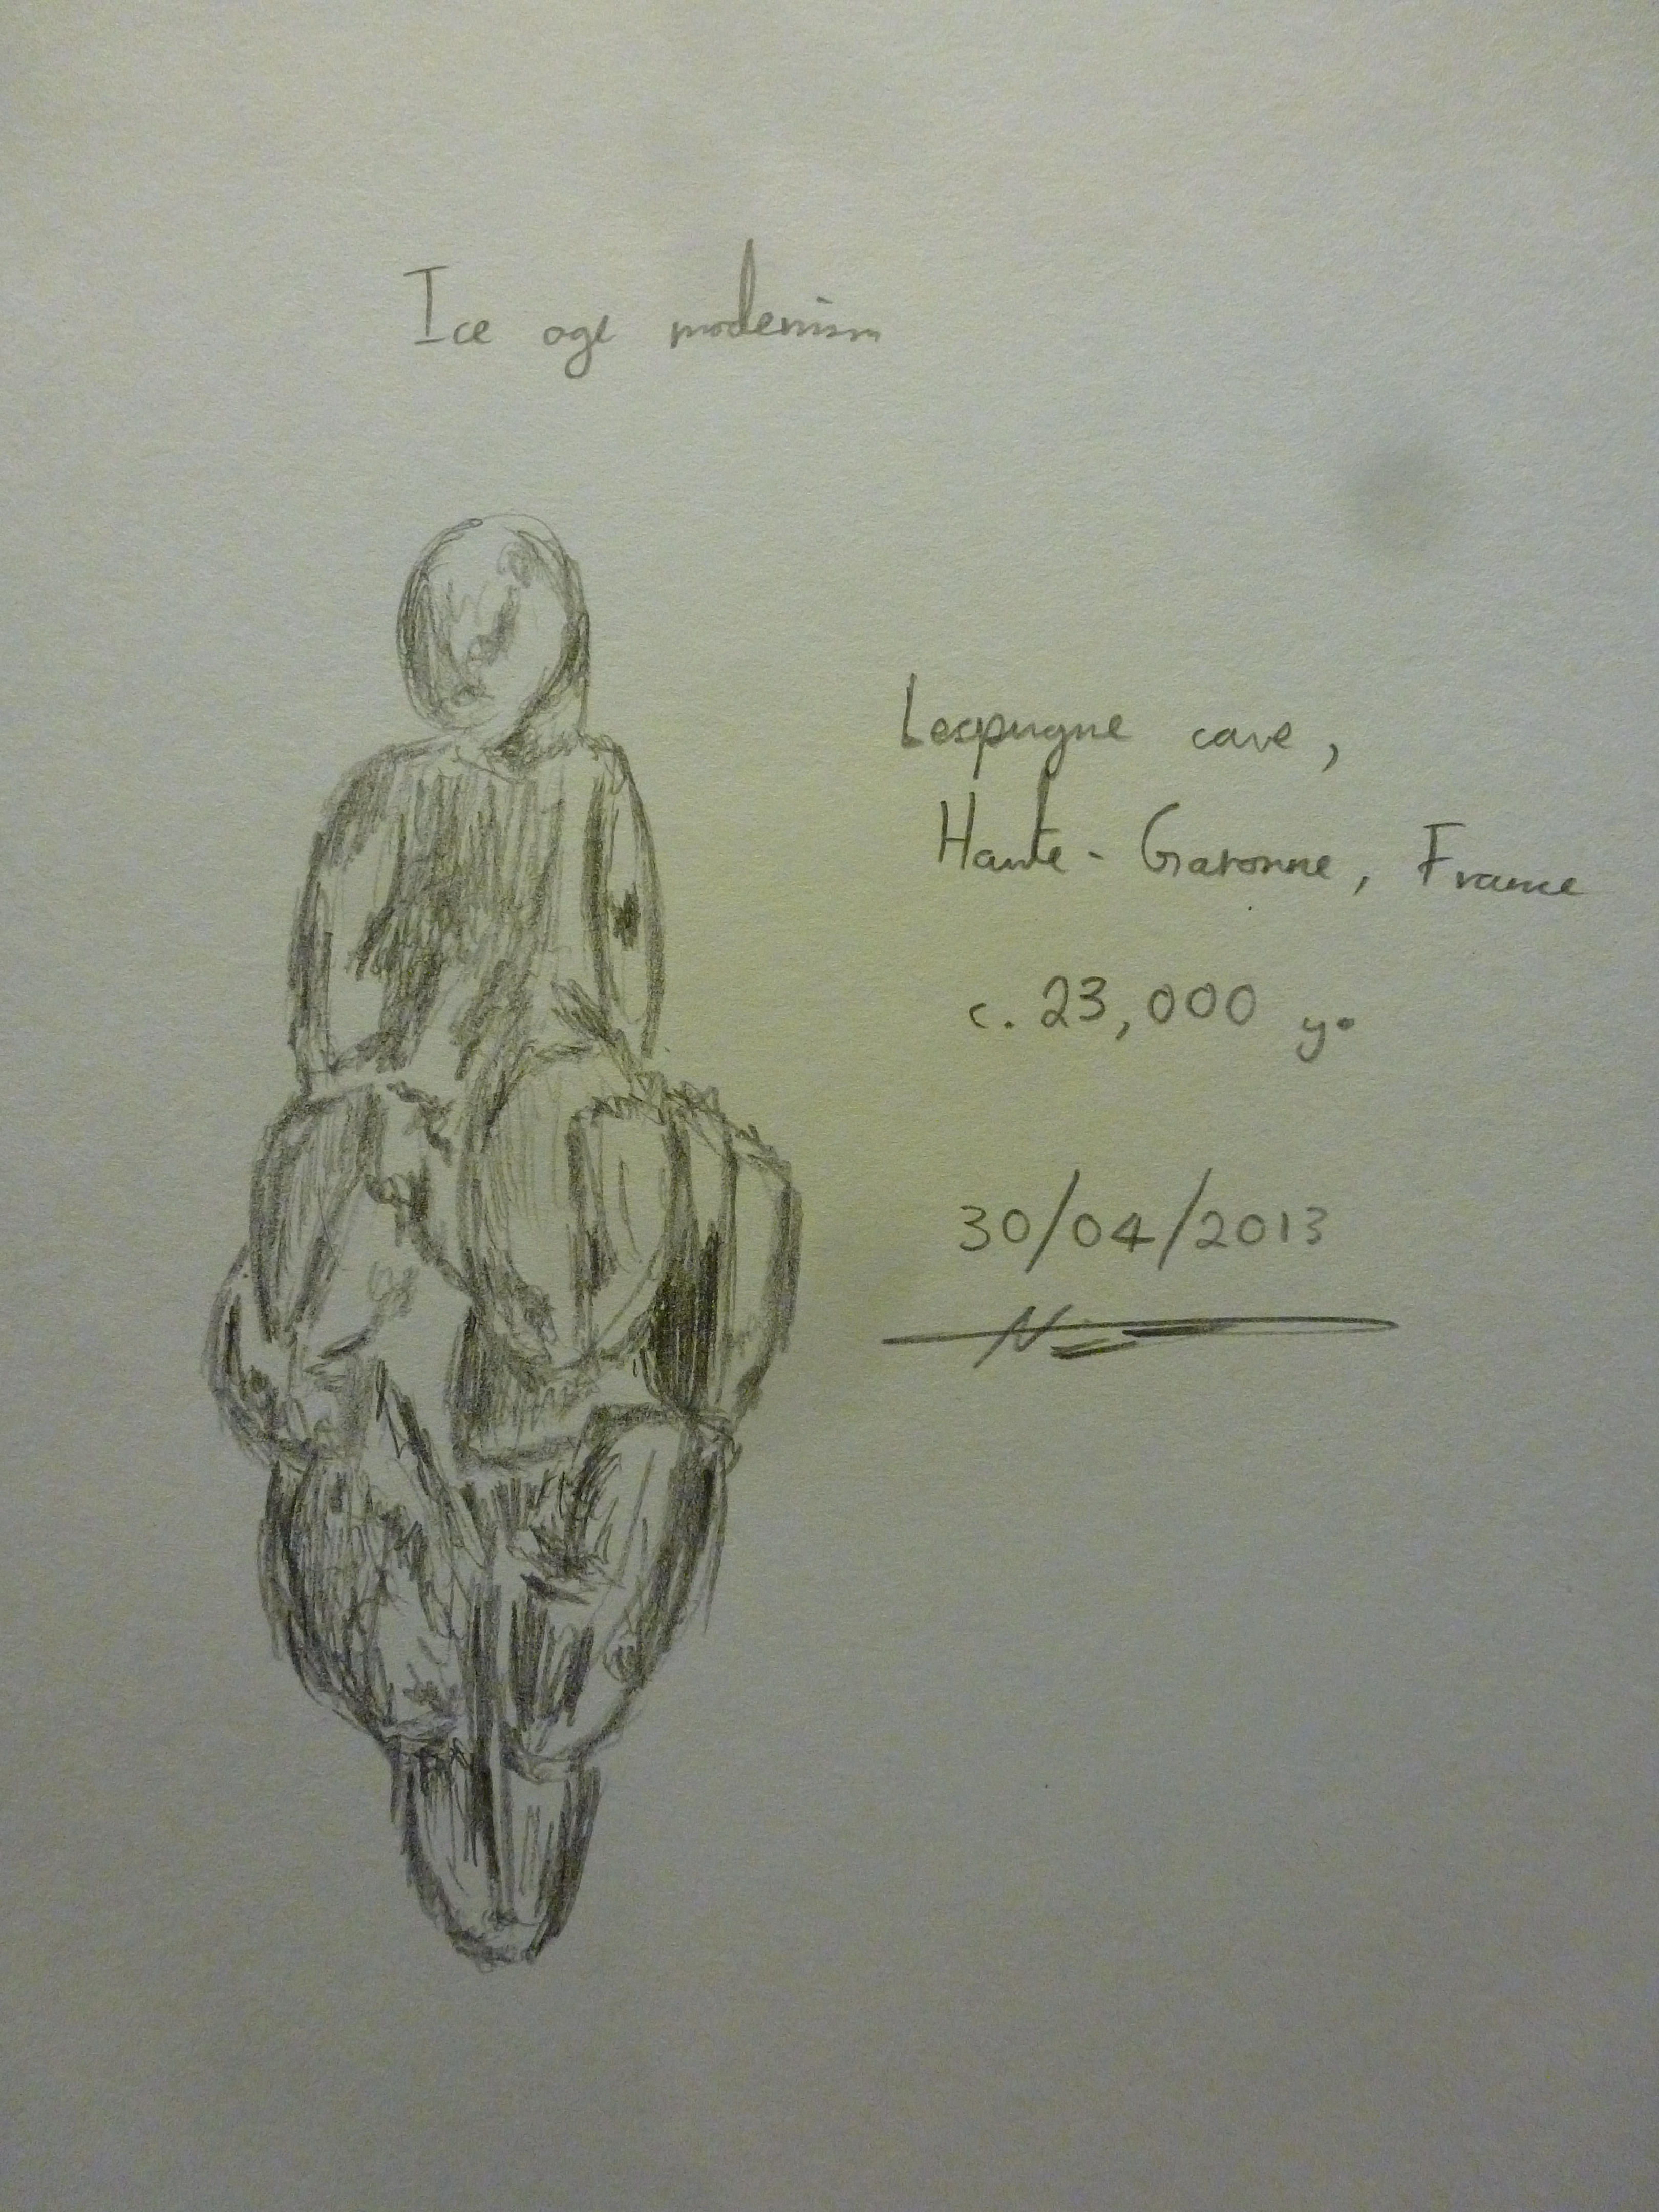 Ice age modernism
Lespugne cave,
Haute-Garonne, France
c. 23,000 yo
30/04/2013